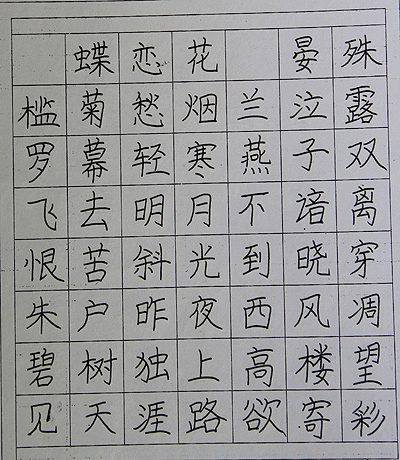 蝶恋花 晏殊
槛菊愁烟兰泣露
罗幕轻寒燕子双
飞去明月不谙离
恨苦斜光到晓穿
朱户昨夜西风凋
碧树独上高楼望
见天涯路欲寄彩